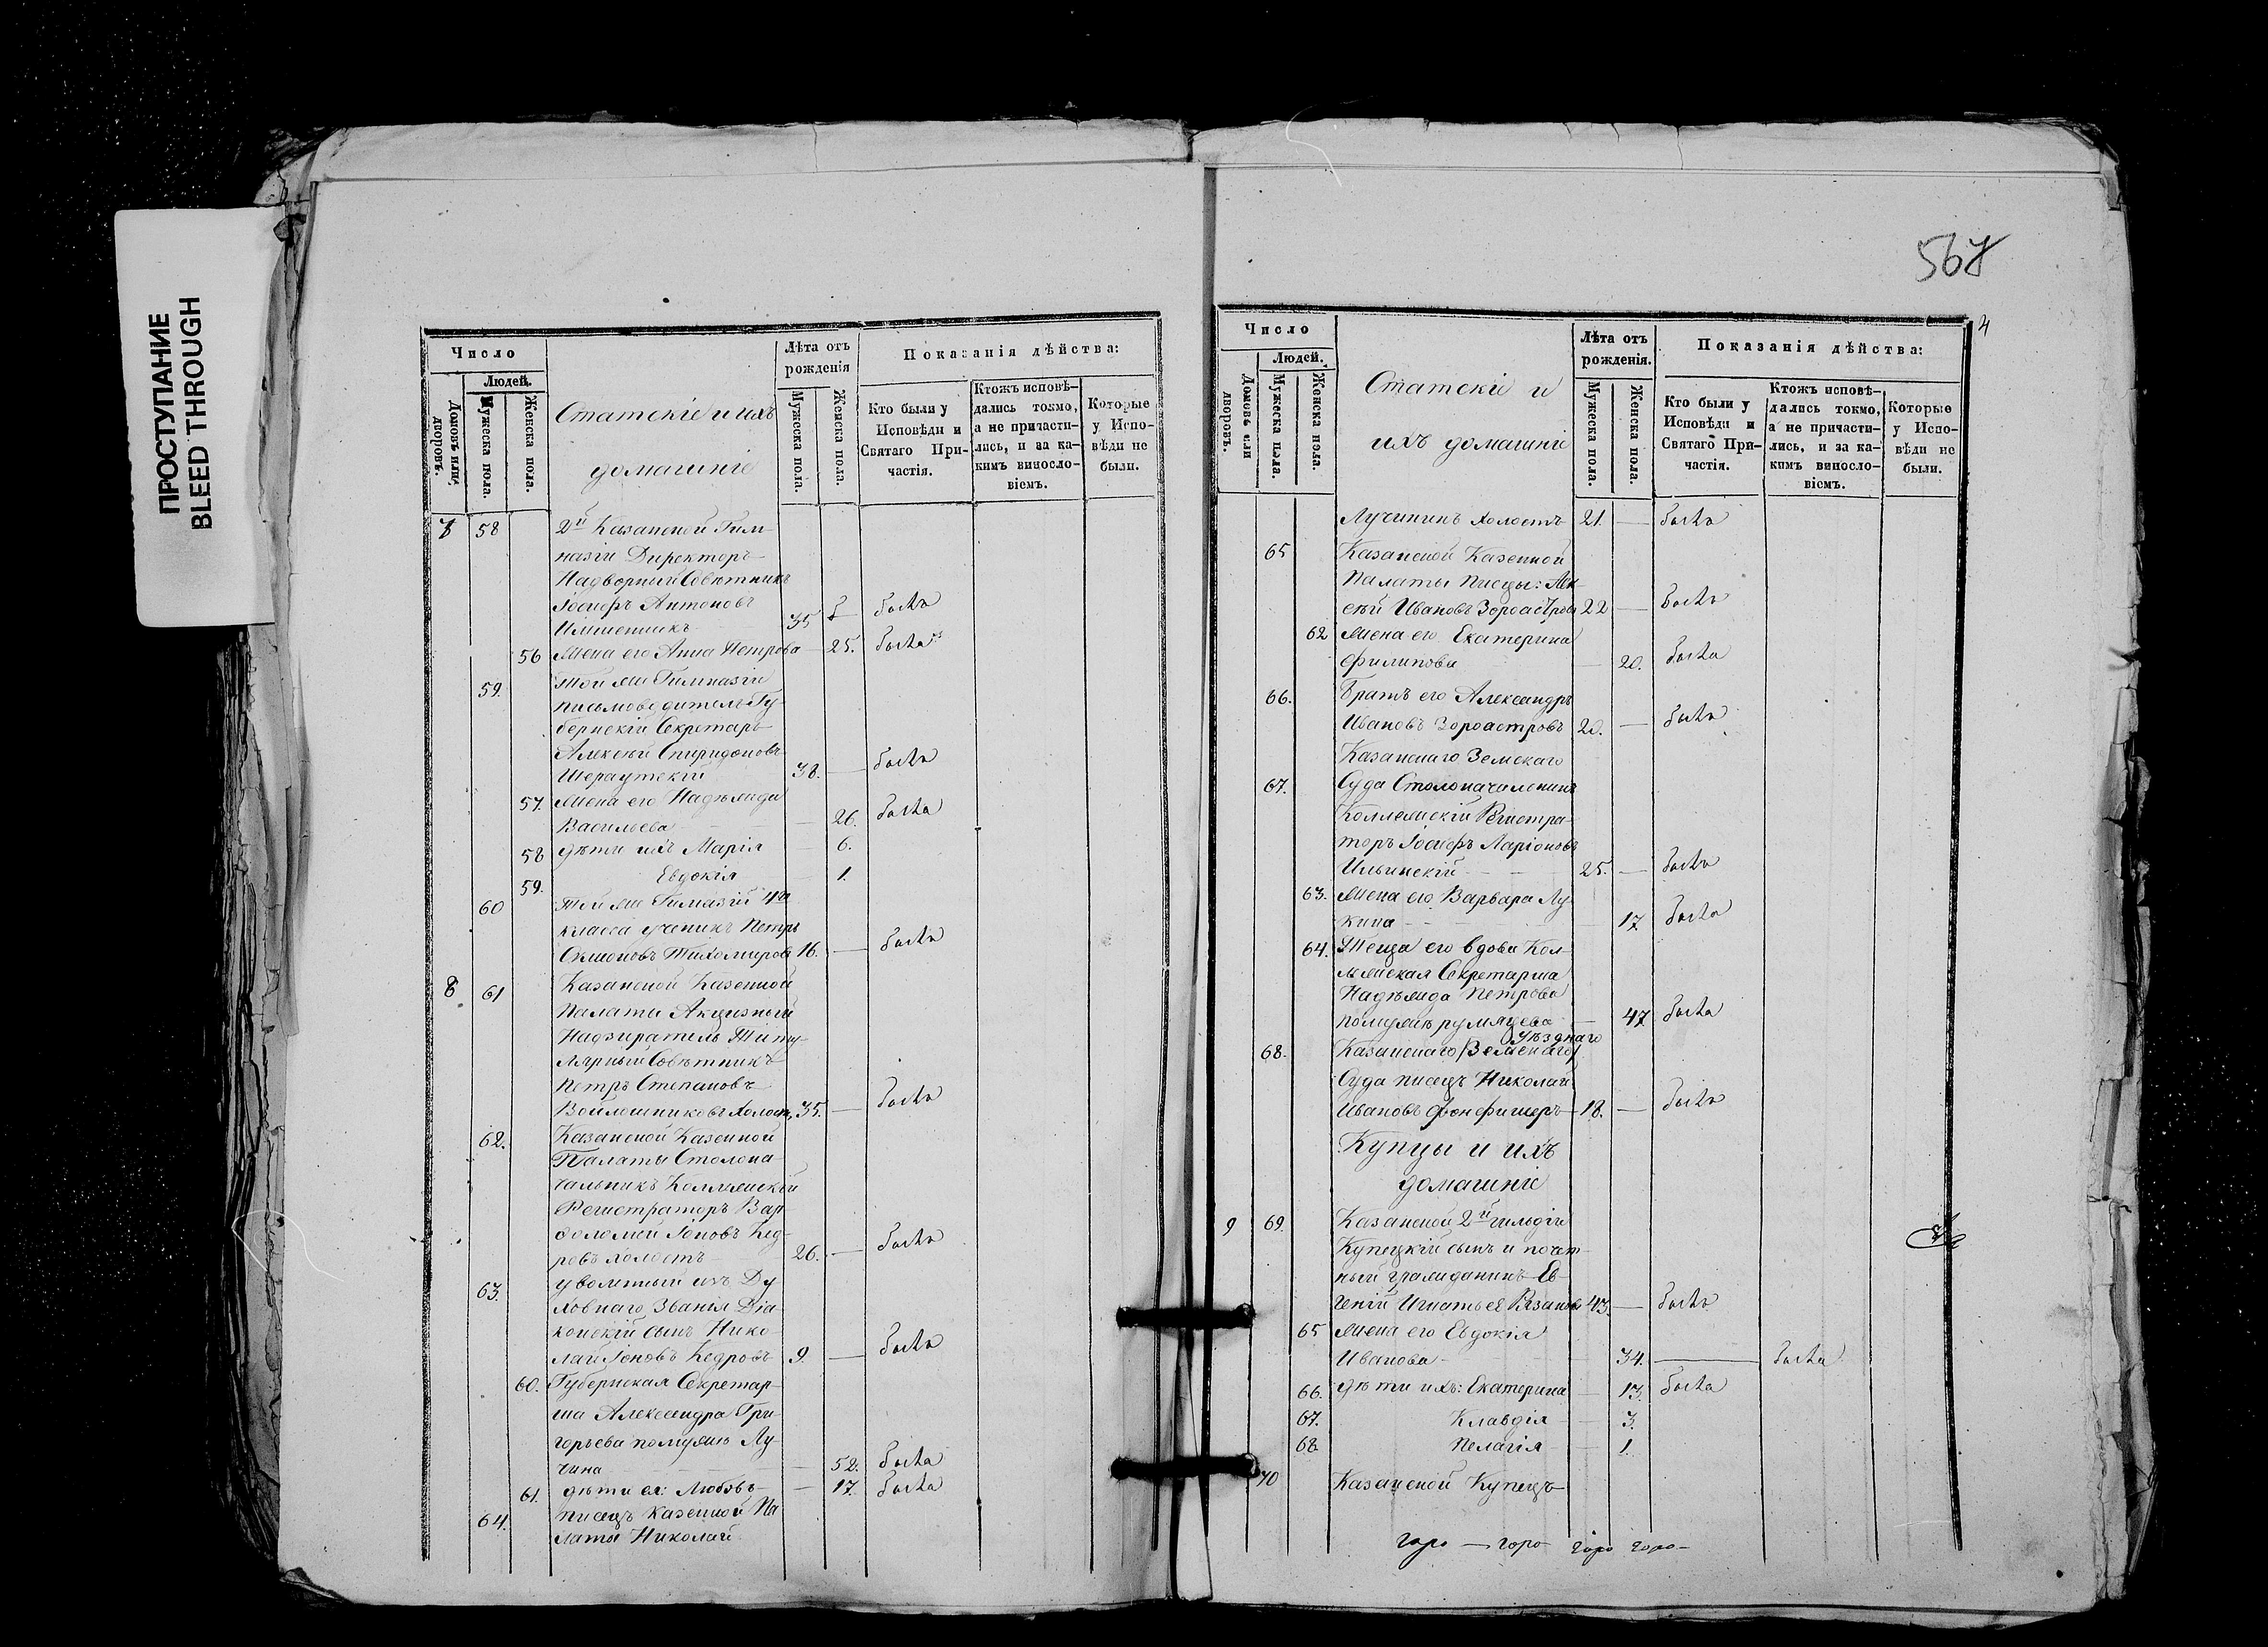 ПРОСТУПАНИЕ
BLEED THROUGH
Число
Людей.
Домовъ или дворовъ.
Мужеска пола.
Женска пола.
Статскіе и ихъ
домашніе
Лѣта отъ
рожденія
Мужеска пола.
Женска пола.
Показанія дѣйства:
Кто были у
Исповѣди и
Святаго При-
частія.
Ктожъ исповѣ-
дались токмо,
а не причасти-
лись, и за ка-
кимъ винословіемъ.
Которые
у Испо-
вѣди не
были.
7 58 2й Казанской Гим-
назіи Директоръ
Надворный Совѣтникъ
Іосифъ Антоновъ
35 былъ
56 Жена его Анна Петрова 25. была
59. Той же Гимназіи
письмоводитель Гу-
бернскій Секретарь
Алексѣй Спиридоновъ
Шераутскій 38. былъ
57. Жена его Надежда
Васильева 26. была
58 дѣти ихъ Марія 6.
59. Евдокія 1.
60 Той же Гимназіи 4го
класса ученикъ Петръ
Симоновъ Тихомировъ 16. былъ
8 61 Казанской Казенной
Палаты Акцизный
Надзиратель Титу-
лярный Совѣтникъ
Петръ Степановъ
Войлошниковъ холостъ 35. былъ
62. Казанской Казенной
Палаты Столона-
чальникъ Коллежскій
Регистраторъ Вар-
фоломей Іоновъ Кед-
ровъ холостъ 26. былъ
63. уволенный изъ Ду-
ховнаго Званія Діа-
конскій сынъ Нико-
лай Іоновъ Кедровъ 9. былъ
60. Губернская Секретар-
ша Александра Гри-
горьева помужѣ Лу-
чина 52. была
61. дѣти ея: Любовь 17. была
64. писецъ Казенной Па-
латы Николай
567
4
Число
Людей.
Домовъ или дворовъ.
Мужеска пола.
Женска пола.
Статскіе и
ихъ домашніе
Лѣта отъ
рожденія.
Мужеска пола.
Женска пола.
Показанія дѣйства:
Кто были у
Исповѣди и
Святаго При-
частія.
Ктожъ исповѣ-
дались токмо,
а не причасти-
лись, и за ка-
кимъ виносло-
віемъ.
Которые
у Испо-
вѣди не
были.
Лучининъ холостъ 21. былъ
65 Казанской Казенной
Палаты писцы: Алек-
сѣй Ивановъ Зороастровъ 22 былъ
62 Жена его Екатерина
Филипова 20. была
66. Братъ его Александръ
Ивановъ Зороастровъ 20. былъ
Казанскаго Земскаго
67. Суда Столоначальникъ
Коллежскій Регистра-
торъ Іосифъ Ларіоновъ
Ильинскій 25. былъ
63. Жена его Варвара Лу-
кина 17 была
64. Теща его вдова Кол-
лежская Секретарша
Надежда Петрова
помужѣ румянцева 47 была
Уѣзднаго
68. Казанскаго Земскаго
Суда писецъ Николай
Ивановъ фонфишеръ 18. былъ
Купцы и ихъ
домашніе
9 69. Казанской 2й гильдіи
Купецкій сынъ и почет-
ный гражданинъ Ев-
геній Игнатьев Рязановъ 43 былъ
65 Жена его Евдокія
Иванова 34. была
66. дѣти ихъ: Екатерина 13. была
67. Клавдія 3.
68. Пелагія 1.
70 Казанской Купецъ